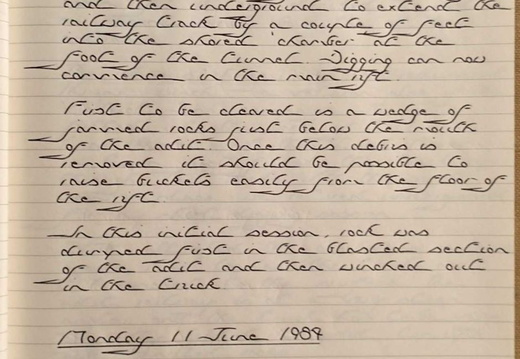 and then underground to extend the
railway track by a couple of feet
into the shored chamber at the
foot of the tunnel. Digging can now
commence in the main rift.
First to be cleared is a wedge of
jammed rocks just below the mouth
of the adit. Once this debris is
removed it should be possible to
raise buckets easily from the floor of
the rift.
In this initial session, rock was
dumped first in the blasted section
of the adit and then winched out
in the truck.
Monday 11 June 1984